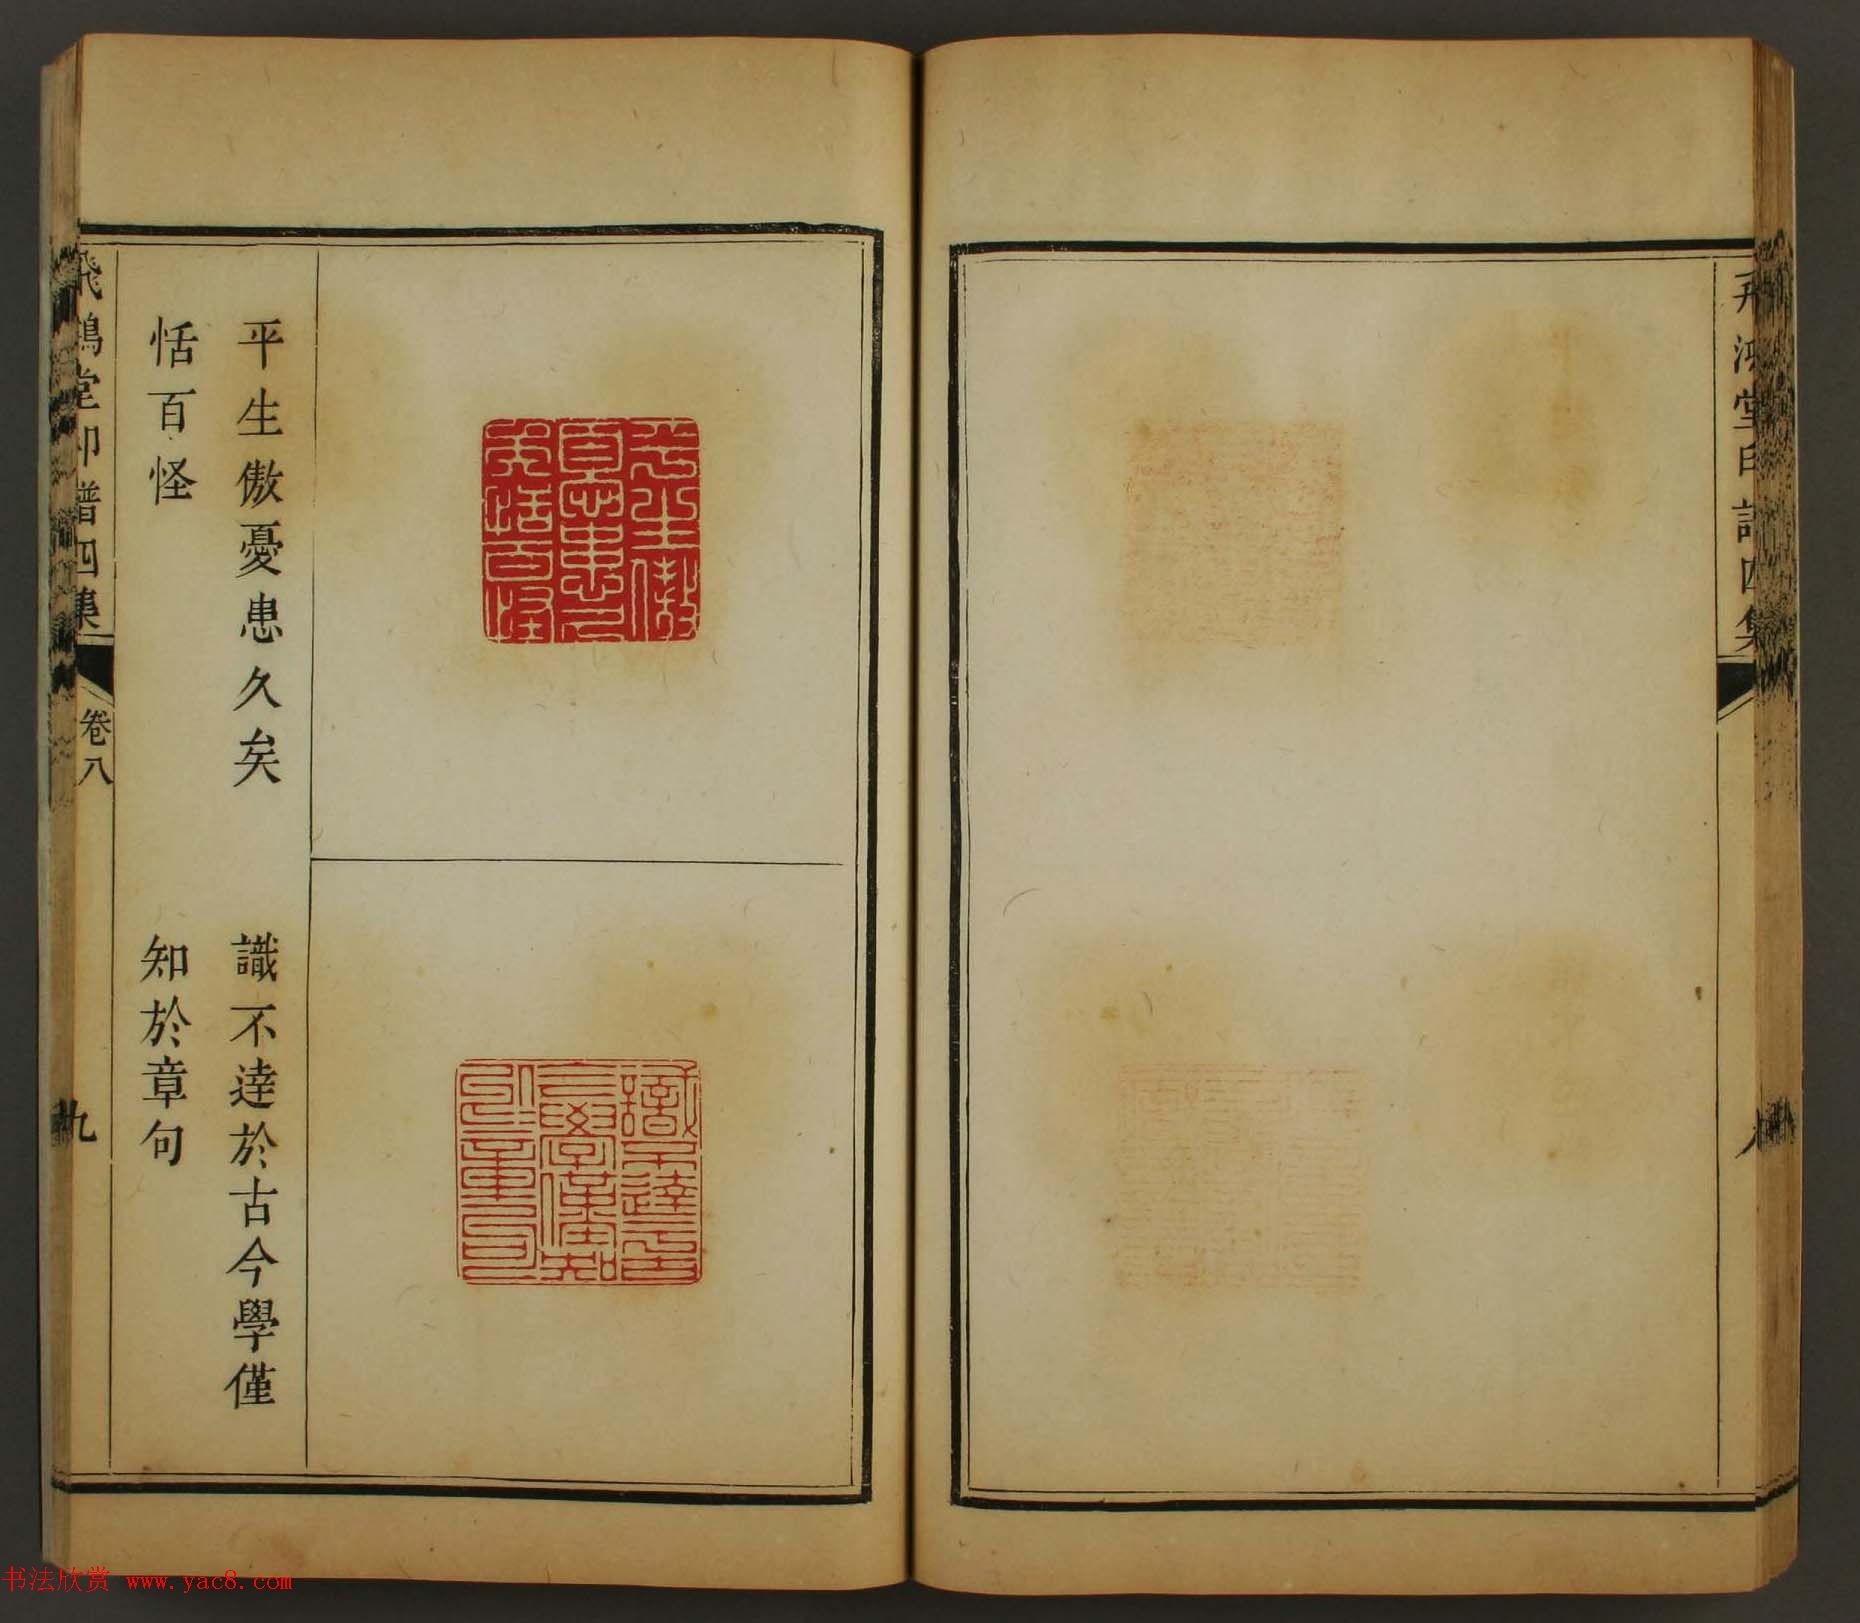 飛鴻堂印譜四集
八
平生傲憂患久矣
恬百怪
識不達於古今學僅
知於章句
飛鴻堂印譜四集
卷八
九
书法欣赏 www.yac8.com